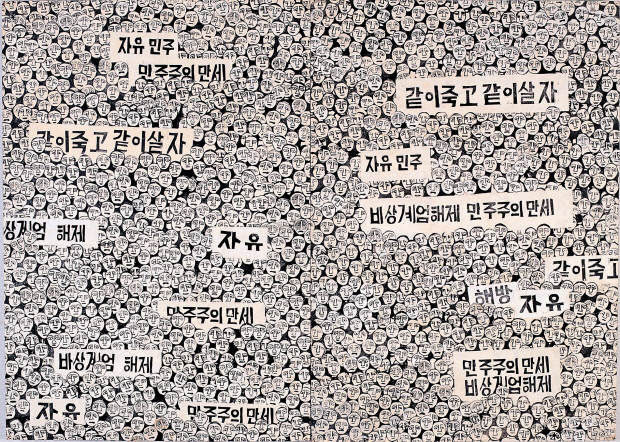 자유 민주
민주주의 만세
같이죽고 같이살자
비상계엄 해제
자유
민주주의 만세
비상계엄 해제
자유
민주주의 만세
같이죽고 같이살자
자유 민주
비상계엄해제 민주주의 만세
같이죽고
해방
자유
민주주의 만세
비상계엄해제